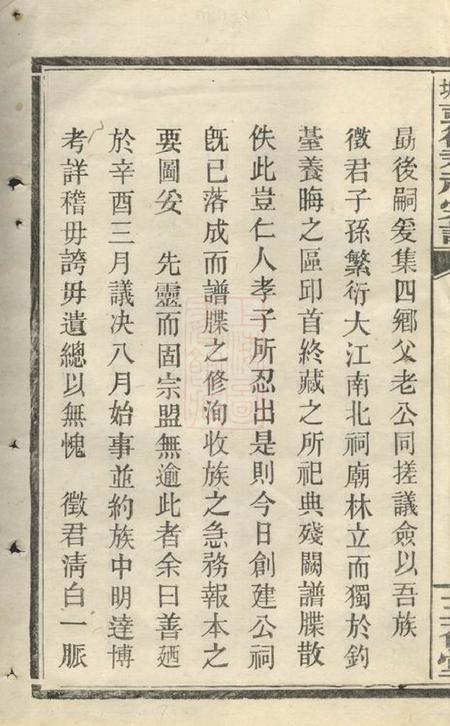 最後嗣爰集四鄉父老公同搓議僉以吾族
徵君子孫繁衍大江南北祠廟林立而獨於釣
臺養晦之區邱首終藏之所祀典殘闕譜牒散
佚此豈仁人孝子所忍出是則今日創建公祠
旣已落成而譜牒之修洵收族之急務報本之
要圖妥　先靈而固宗盟無逾此者余曰善廼
於辛酉三月議決八月始事並約族中明達博
考詳稽毋誇毋遺總以無愧　徵君淸白一脈